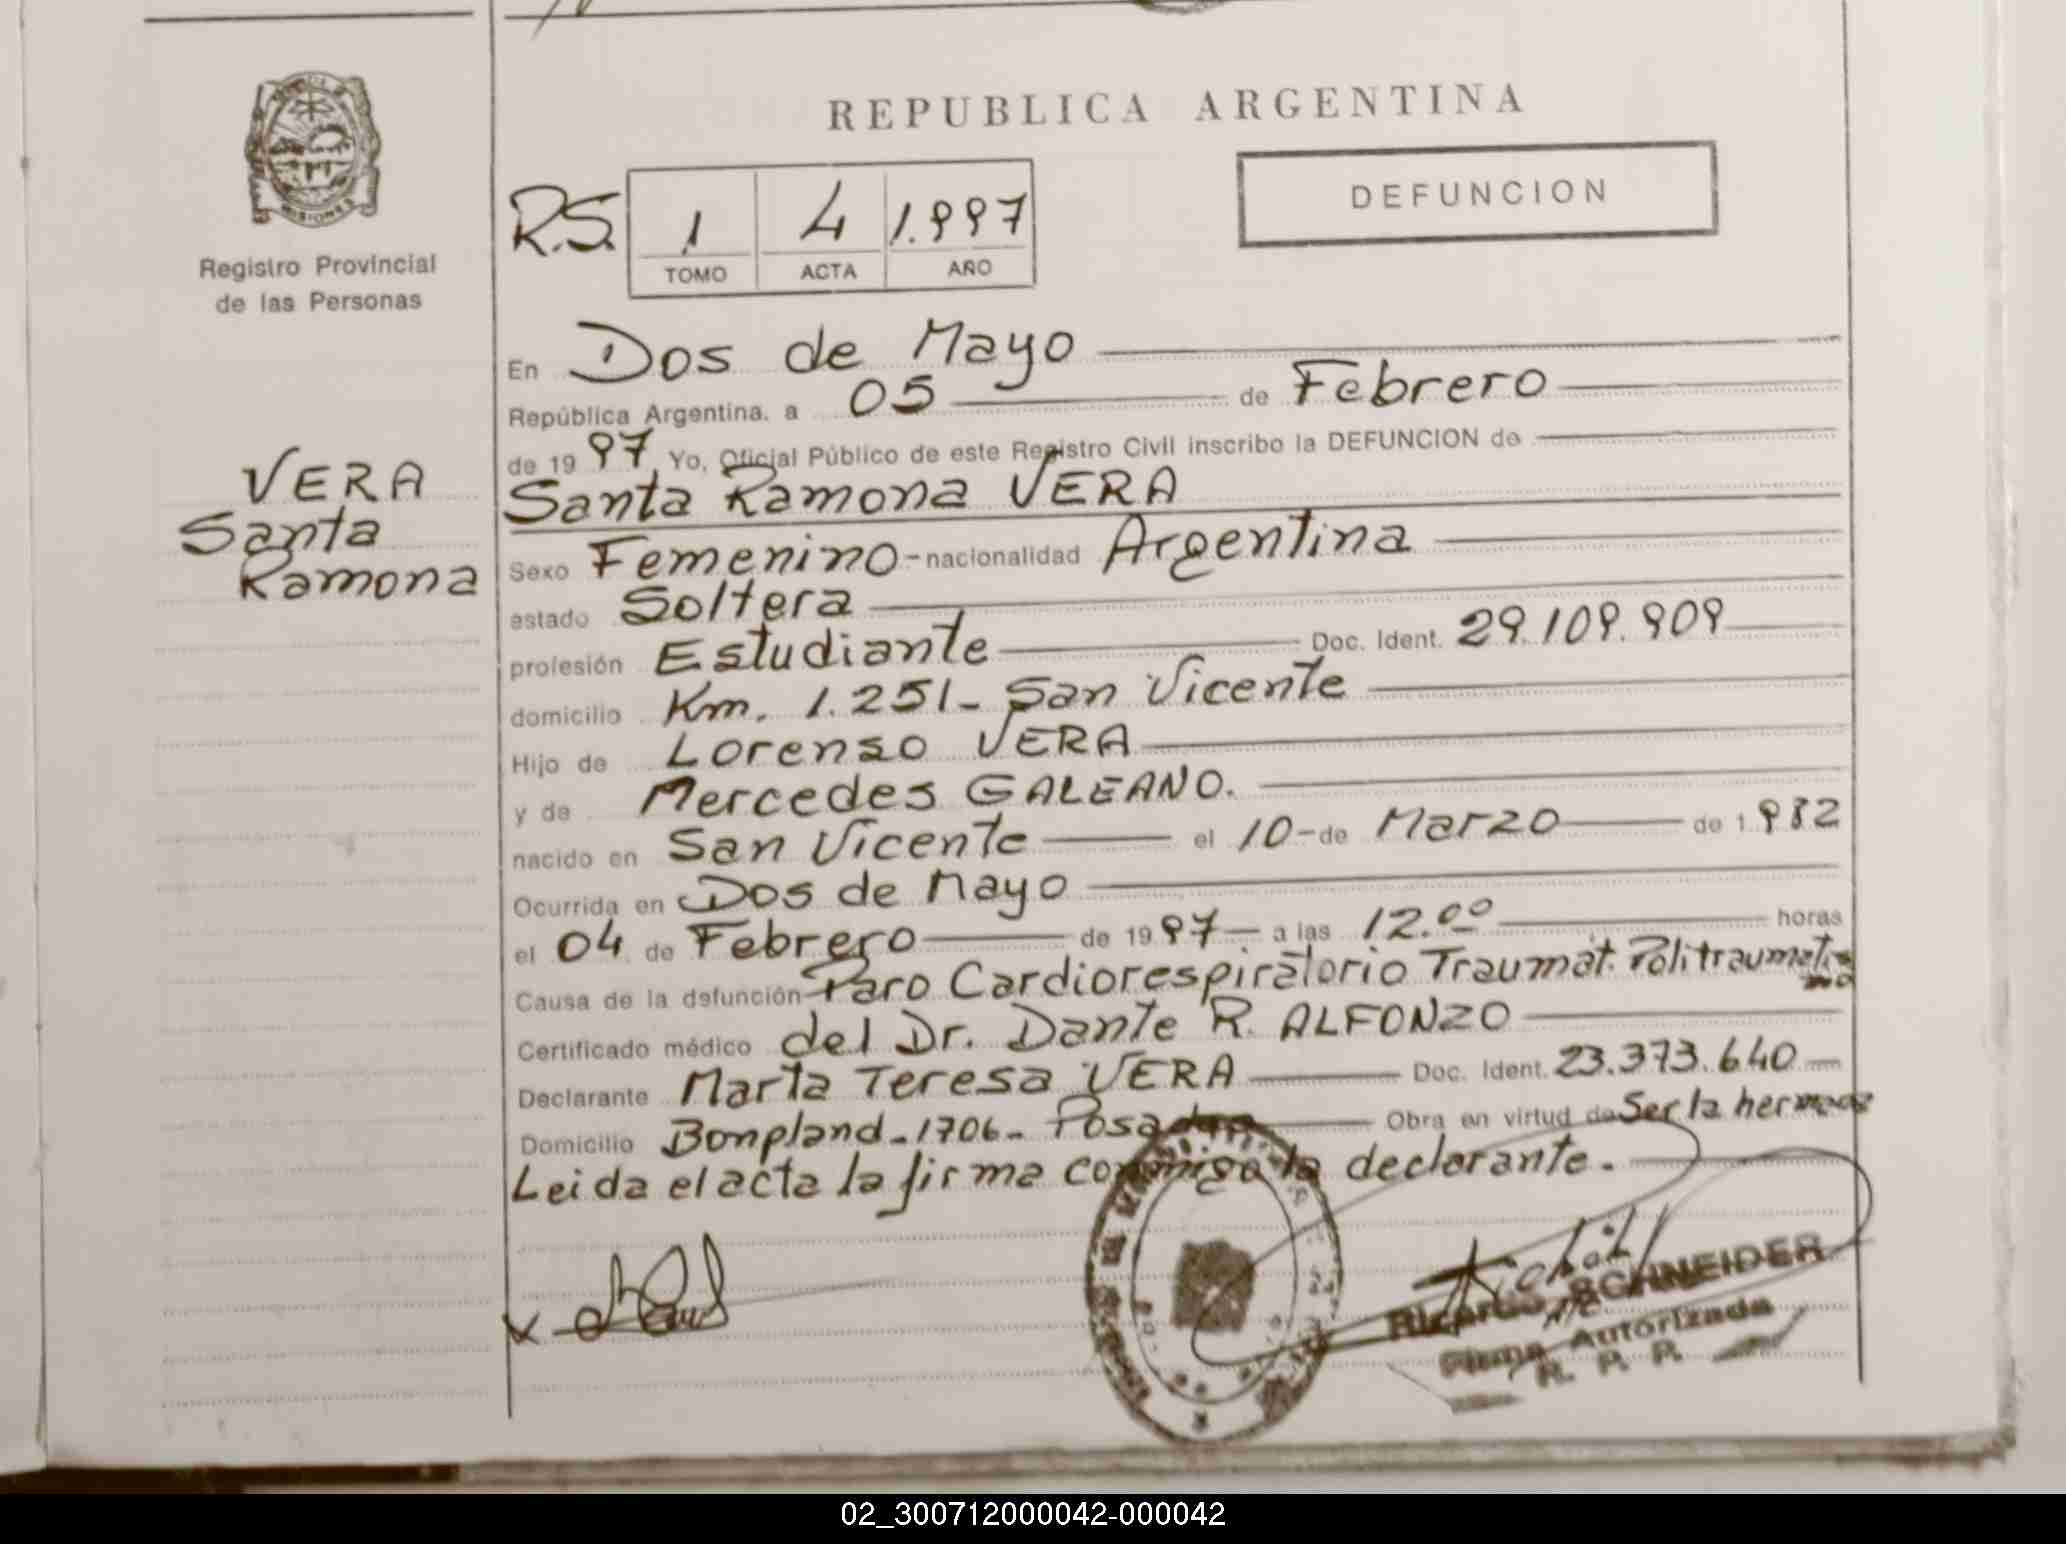 REPUBLICA ARGENTINA
DEFUNCION
R.S. 1 4 1.997
TOMO ACTA AÑO
MISIONES
Registro Provincial
de las Personas
VERA
Santa
Ramona
En Dos de Mayo
República Argentina. a 05 de Febrero
de 19 97, Yo, Oficial Público de este Registro Civil inscribo la DEFUNCION de
Santa Ramona VERA
Sexo Femenino - nacionalidad Argentina
estado Soltera
profesión Estudiante Doc. Ident. 29.109.909
domicilio Km. 1.251 - San Vicente
Hijo de Lorenso VERA
y de Mercedes GALEANO.
nacido en San Vicente el 10 - de Marzo de 1.982
Ocurrida en Dos de Mayo
el 04 de Febrero de 19 97 a las 12.00 horas
Causa de la defunción Paro Cardiorespiratorio Traumat. Politraumatis
mo
Certificado médico del Dr. Dante R. ALFONZO
Declarante Marta Teresa VERA Doc. Ident. 23.373.640
Domicilio Bonpland - 1706 - Posadas Obra en virtud de Ser la hermana
Leida el acta la firma conmigo la declarante.
x
Ricardo SCHNEIDER
Firma Autorizada
R. P. P.
02_300712000042-000042